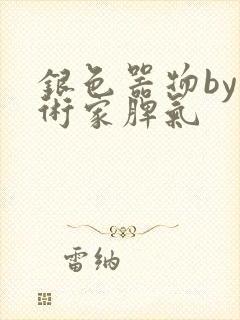 銀色器物by
術家脾氣
雷纳